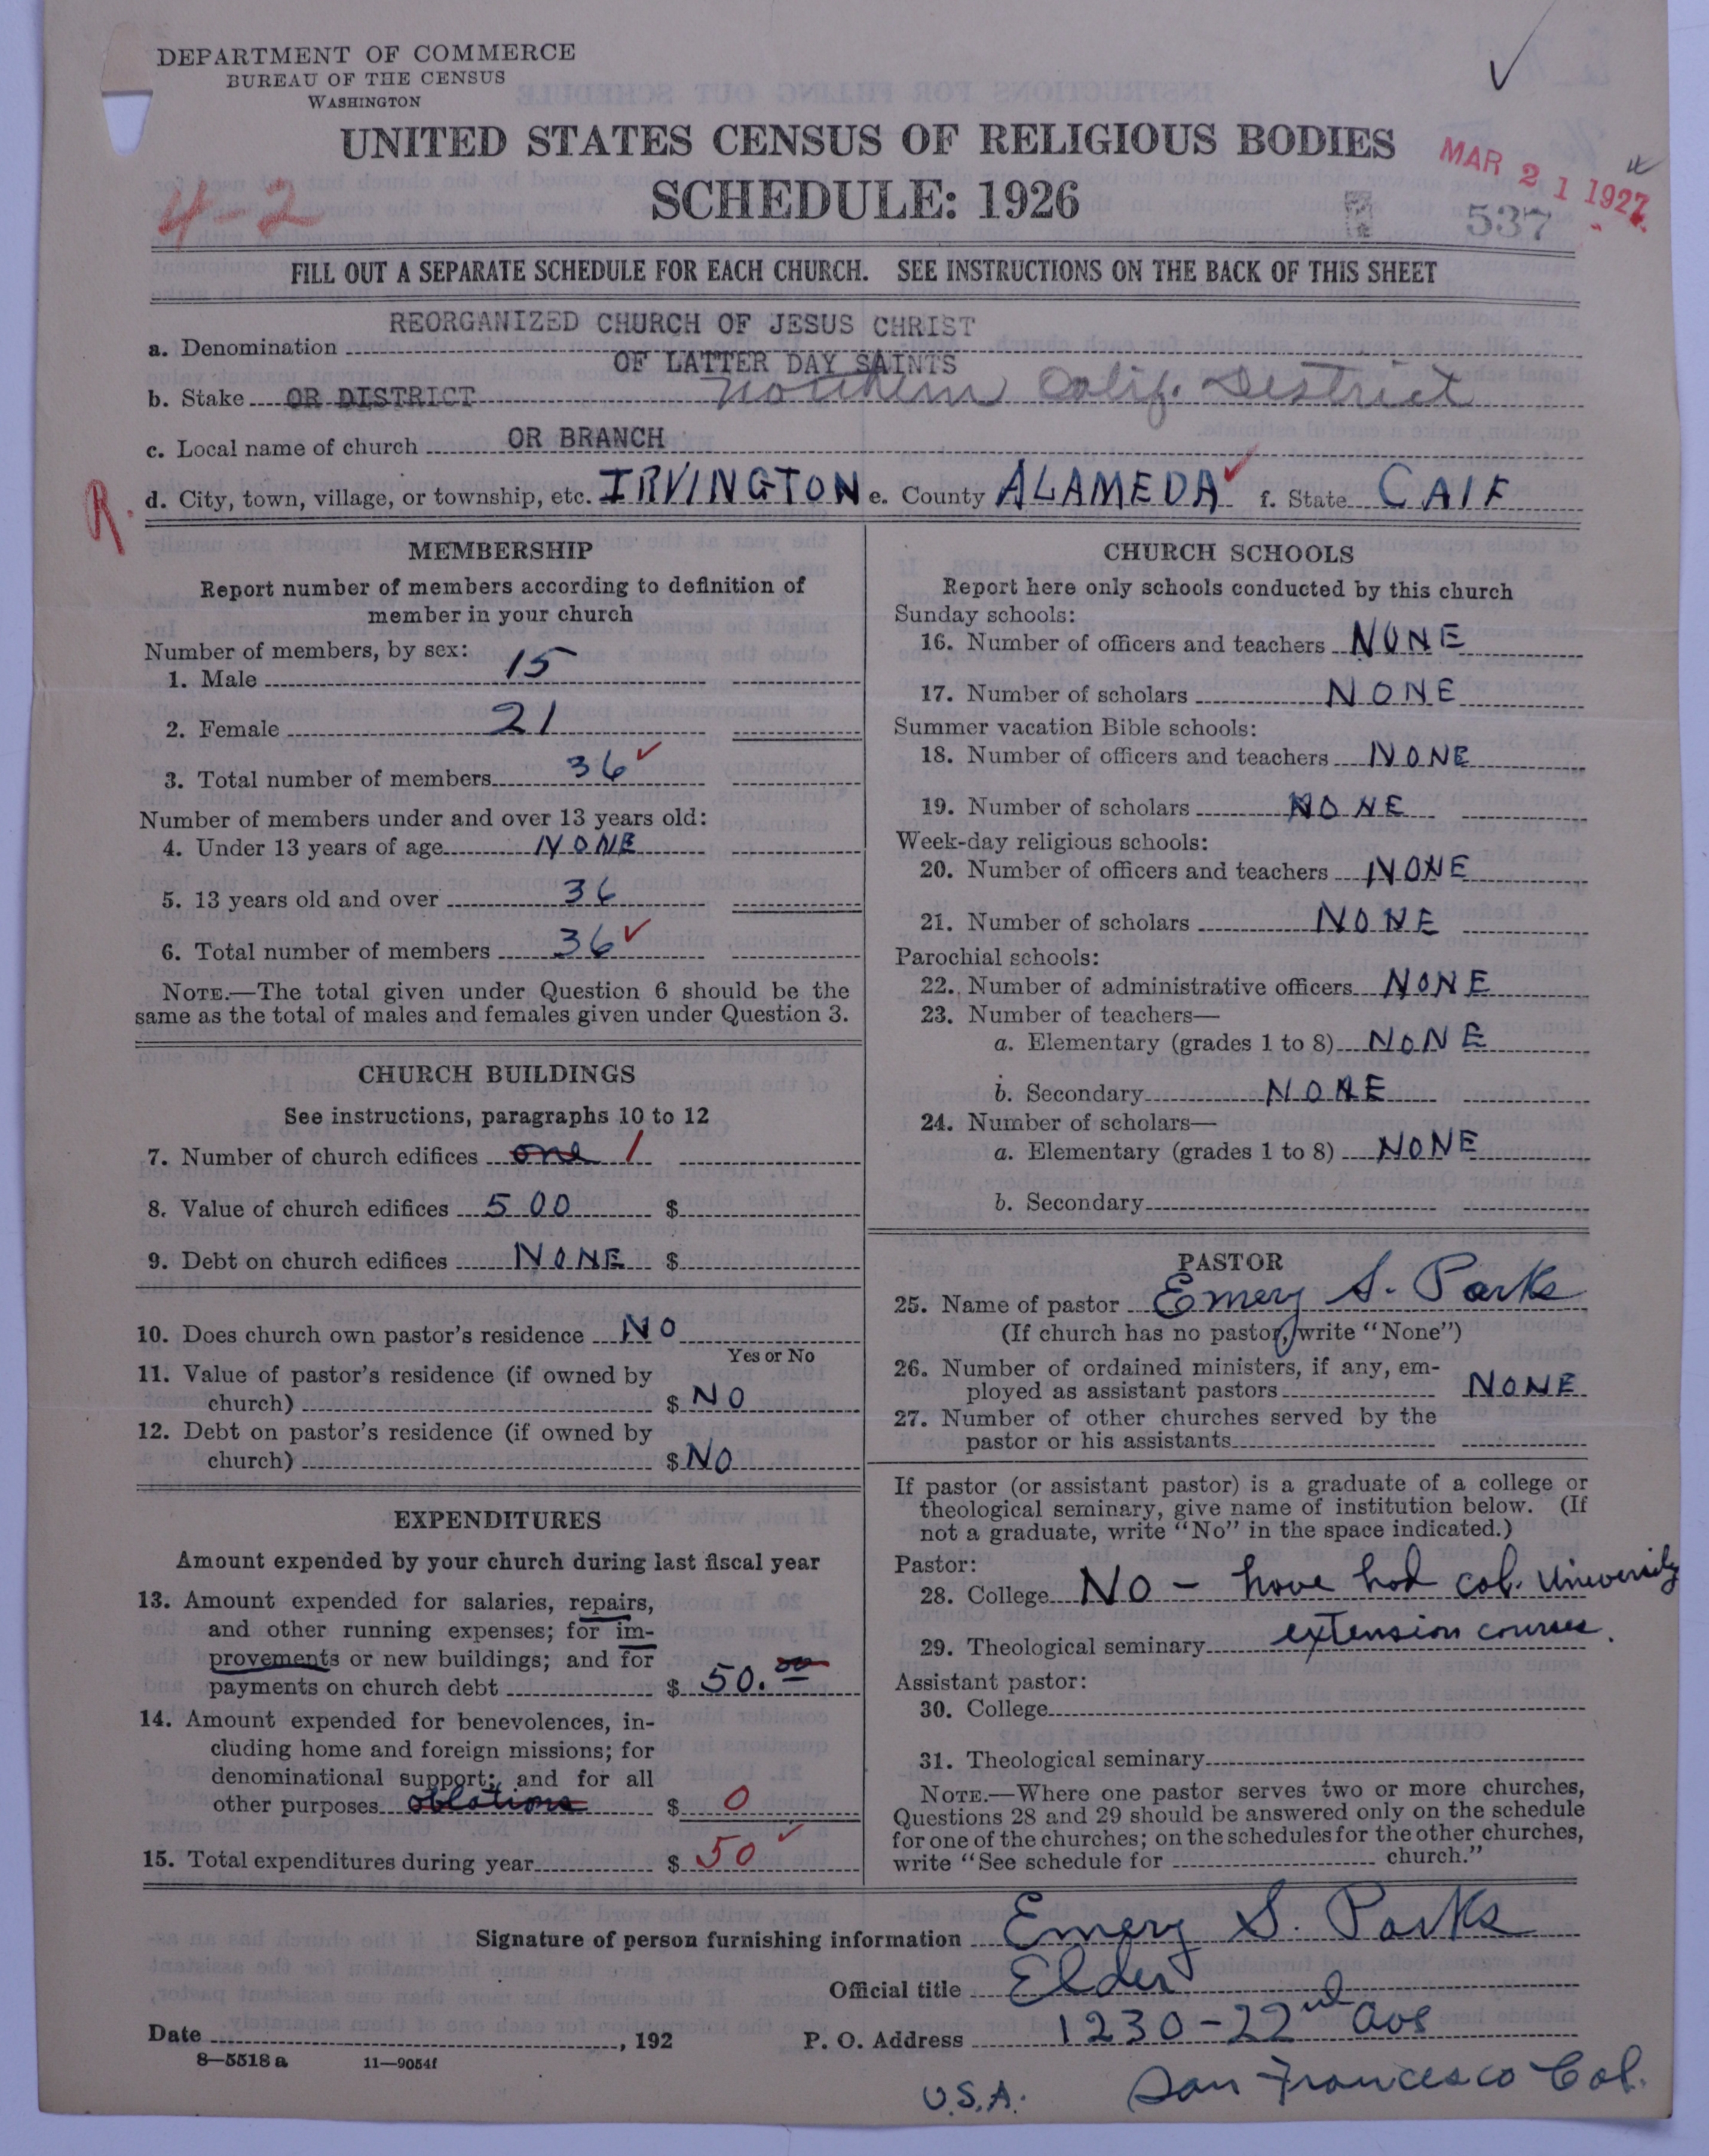 DEPARTMENT OF COMMERCE
BUREAU OF THE CENSUS
WASHINGTON
UNITED STATES CENSUS OF RELIGIOUS BODIES
MAR 21 1927
4-2
SCHEDULE: 1926
537
FILL OUT A SEPARATE SCHEDULE FOR EACH CHURCH. SEE INSTRUCTIONS ON THE BACK OF THIS SHEET
REORGANIZED CHURCH OF JESUS CHRIST
a. Denomination
OF LATTER DAY SAINTS
b. Stake OR DISTRICT Northern Calif. District
c. Local name of church OR BRANCH
R. d. City, town, village, or township, etc. IRVINGTON e. County ALAMEDA f. State CAIF
MEMBERSHIP
Report number of members according to definition of
member in your church
Number of members, by sex:
1. Male 15
2. Female 21
3. Total number of members 36
Number of members under and over 13 years old:
4. Under 13 years of age NONE
5. 13 years old and over 36
6. Total number of members 36
NOTE.—The total given under Question 6 should be the
same as the total of males and females given under Question 3.
CHURCH BUILDINGS
See instructions, paragraphs 10 to 12
7. Number of church edifices one 1
8. Value of church edifices 500 $
9. Debt on church edifices NONE $
10. Does church own pastor's residence NO
Yes or No
11. Value of pastor's residence (if owned by
church) $ NO
12. Debt on pastor's residence (if owned by
church) $ NO
EXPENDITURES
Amount expended by your church during last fiscal year
13. Amount expended for salaries, repairs,
and other running expenses; for im-
provements or new buildings; and for
payments on church debt $ 50.00
14. Amount expended for benevolences, in-
cluding home and foreign missions; for
denominational support; and for all
other purposes oblations $ 0
15. Total expenditures during year $ 50
CHURCH SCHOOLS
Report here only schools conducted by this church
Sunday schools:
16. Number of officers and teachers NONE
17. Number of scholars NONE
Summer vacation Bible schools:
18. Number of officers and teachers NONE
19. Number of scholars NONE
Week-day religious schools:
20. Number of officers and teachers NONE
21. Number of scholars NONE
Parochial schools:
22. Number of administrative officers NONE
23. Number of teachers—
a. Elementary (grades 1 to 8) NONE
b. Secondary NONE
24. Number of scholars—
a. Elementary (grades 1 to 8) NONE
b. Secondary
PASTOR
25. Name of pastor Emery S. Parks
(If church has no pastor, write "None")
26. Number of ordained ministers, if any, em-
ployed as assistant pastors NONE
27. Number of other churches served by the
pastor or his assistants
If pastor (or assistant pastor) is a graduate of a college or
theological seminary, give name of institution below. (If
not a graduate, write "No" in the space indicated.)
Pastor:
28. College NO - have had cal. University
29. Theological seminary extension courses.
Assistant pastor:
30. College
31. Theological seminary
NOTE.—Where one pastor serves two or more churches,
Questions 28 and 29 should be answered only on the schedule
for one of the churches; on the schedules for the other churches,
write "See schedule for church."
Signature of person furnishing information Emery S. Parks
Official title Elder
Date , 192 P. O. Address 1230-22nd ave
8—5518a 11—9054f
U.S.A. San Francesco Cal.